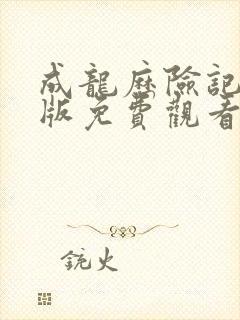 成龍歷險記
版免費觀看
銃火